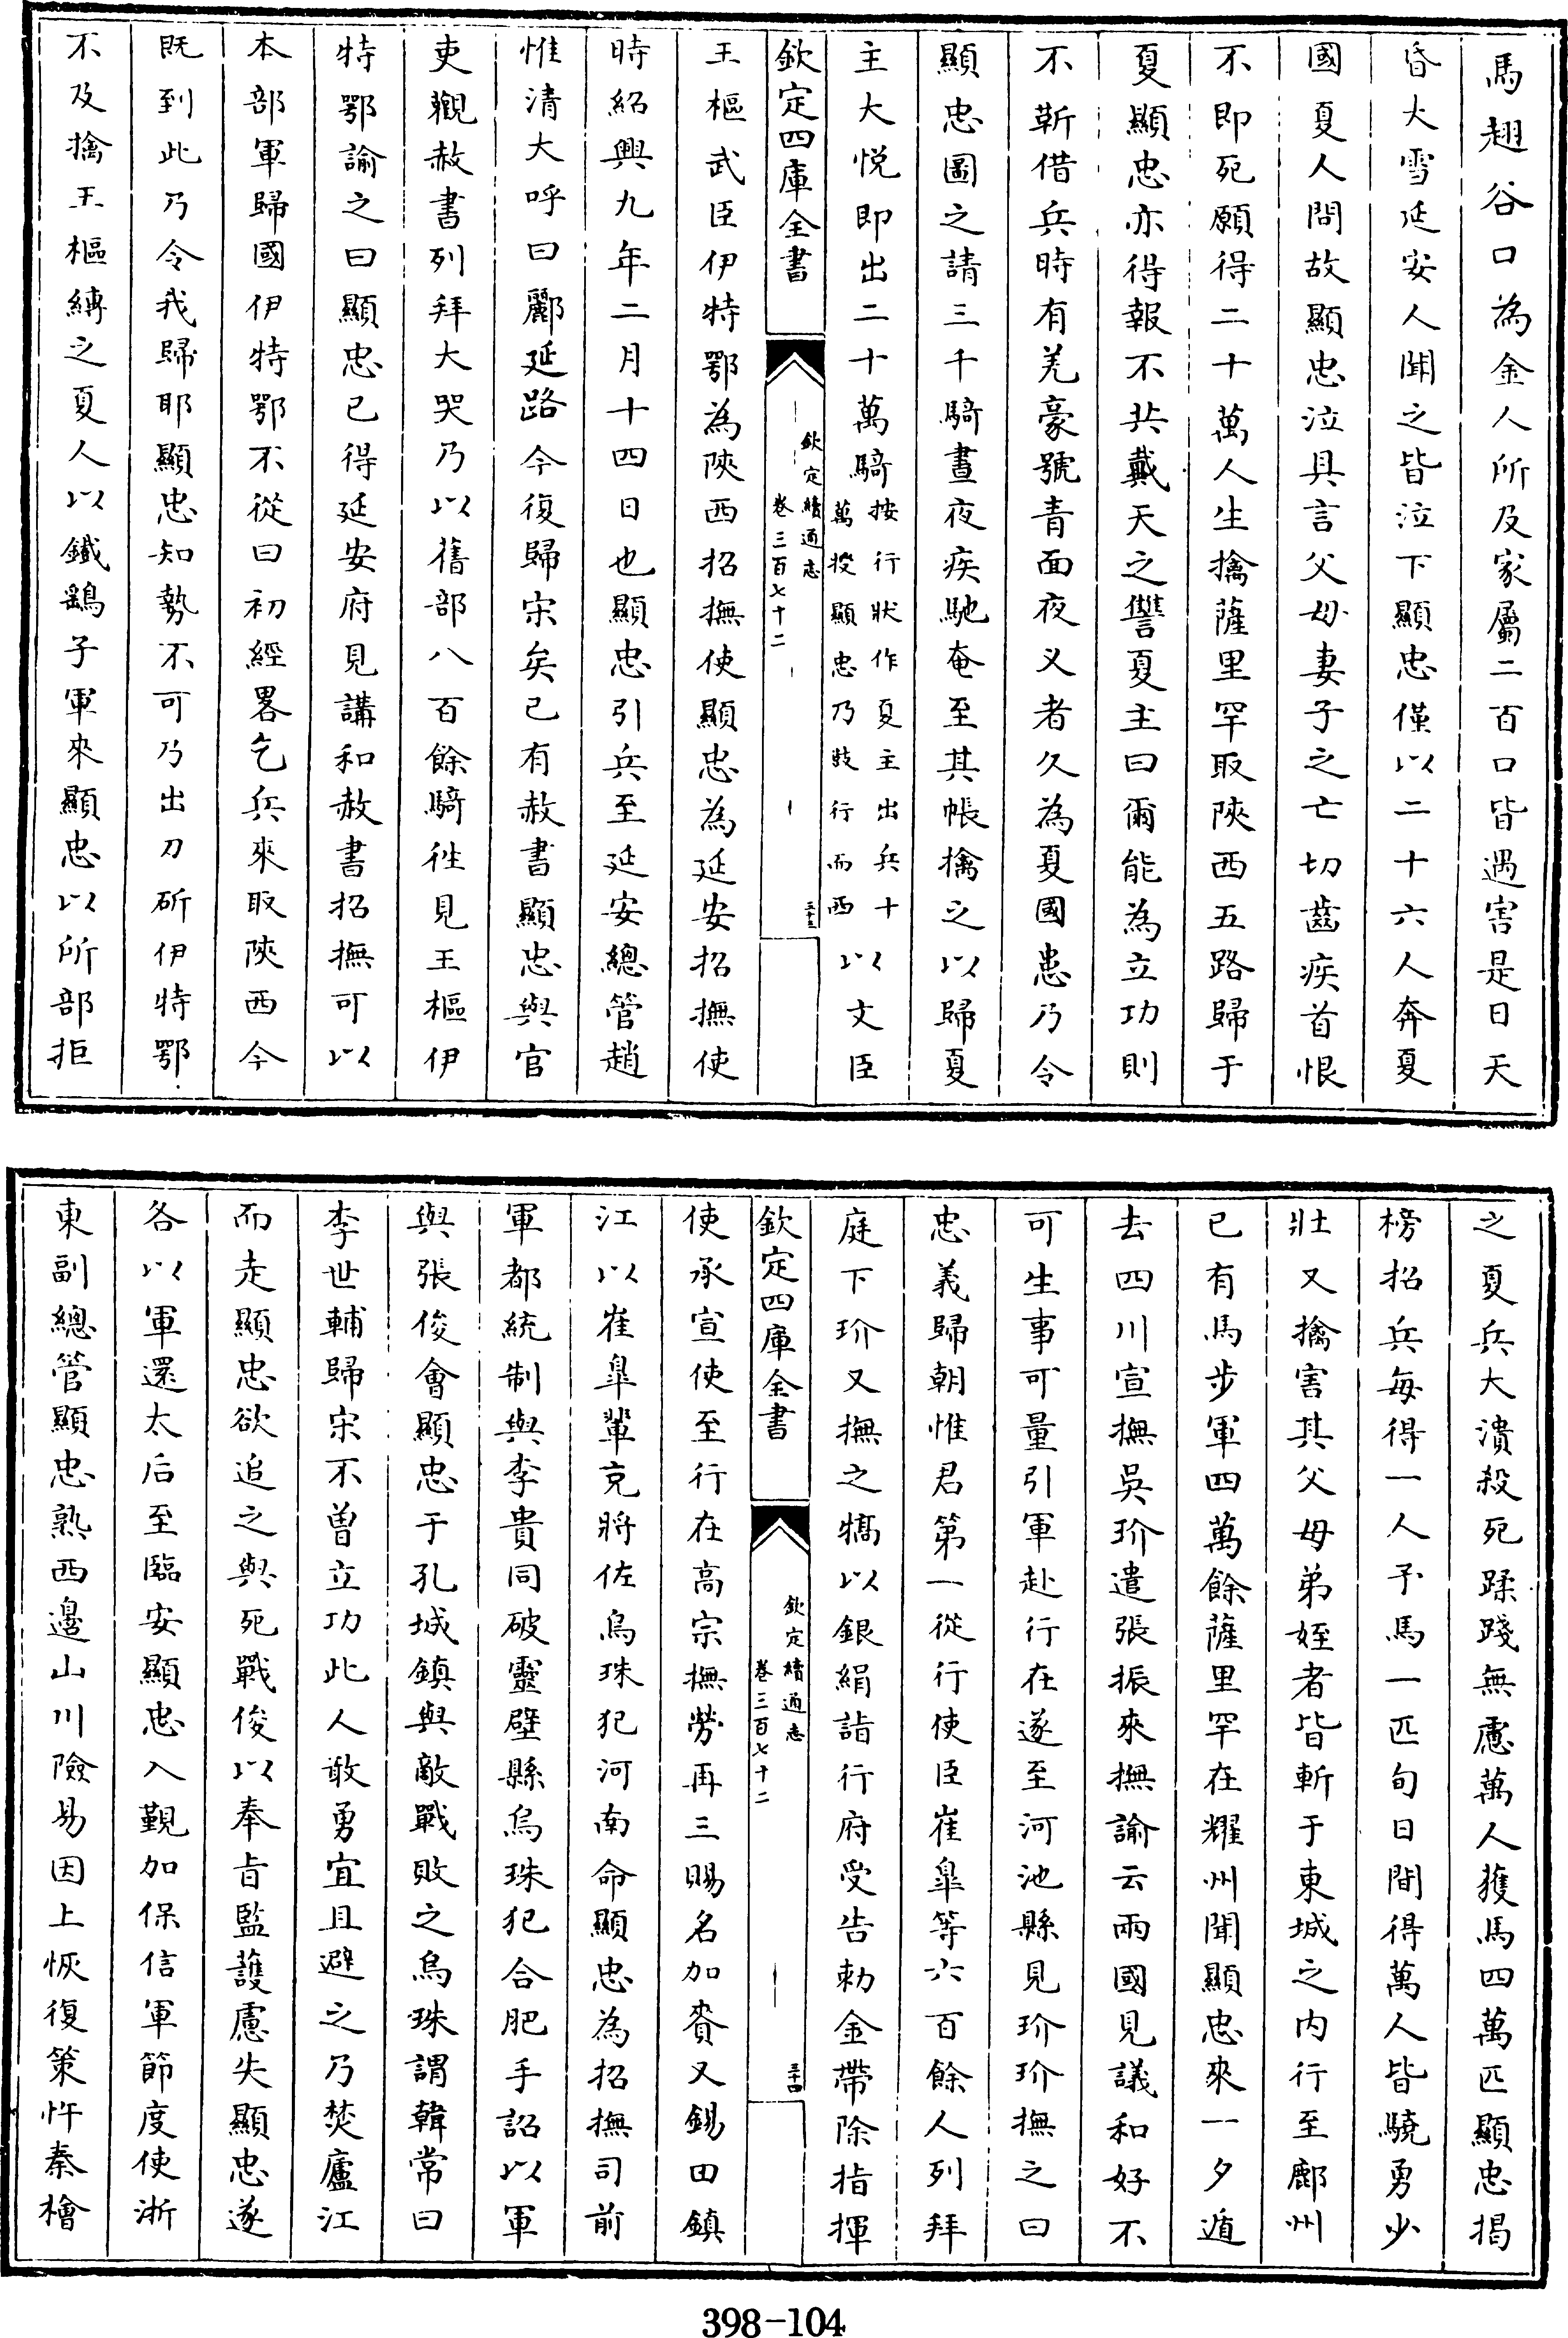 馬翅谷口為金人所及家屬二百口皆遇害是日天
昏大雪延安人聞之皆泣下顯忠僅以二十六人奔夏
國夏人問故顯忠泣具言父母妻子之亡切齒疾首恨
不即死願得二十萬人生擒薩里罕取陝西五路歸于
夏顯忠亦得報不共戴天之讐夏主曰爾能為立功則
不靳借兵時有羌豪號青面夜义者久為夏國患乃令
顯忠圖之請三千騎晝夜疾馳奄至其帳擒之以歸夏
主大悦即出二十萬騎按行狀作夏主出兵十萬授顯忠乃鼓行而西以文臣
欽定四庫全書
欽定續通志
卷三百七十二
三十三
王樞武臣伊特鄂為陝西招撫使顯忠為延安招撫使
時紹興九年二月十四日也顯忠引兵至延安總管趙
惟清大呼曰鄜延路今復歸宋矣已有赦書顯忠與官
吏觀赦書列拜大哭乃以舊部八百餘騎徃見王樞伊
特鄂諭之曰顯忠已得延安府見講和赦書招撫可以
本部軍歸國伊特鄂不從曰初經畧乞兵來取陝西今
既到此乃令我歸耶顯忠知勢不可乃出刀斫伊特鄂
不及擒王樞縛之夏人以鐵鷂子軍來顯忠以所部拒
之夏兵大潰殺死蹂踐無慮萬人獲馬四萬匹顯忠揭
榜招兵每得一人予馬一匹旬日間得萬人皆驍勇少
壯又擒害其父母弟姪者皆斬于東城之内行至鄜州
已有馬步軍四萬餘薩里罕在耀州聞顯忠來一夕遁
去四川宣撫吳玠遣張振來撫諭云兩國見議和好不
可生事可量引軍赴行在遂至河池縣見玠玠撫之曰
忠義歸朝惟君第一從行使臣崔臯等六百餘人列拜
庭下玠又撫之犒以銀絹詣行府受告勅金帶除指揮
欽定四庫全書
欽定續通志
卷三百七十二
三十四
使承宣使至行在高宗撫勞再三賜名加賚又錫田鎮
江以崔臯輩充將佐烏珠犯河南命顯忠為招撫司前
軍都統制與李貴同破靈壁縣烏珠犯合肥手詔以軍
與張俊會顯忠于孔城鎮與敵戰敗之烏珠謂韓常曰
李世輔歸宋不曽立功此人敢勇宜且避之乃焚廬江
而走顯忠欲追之與死戰俊以奉旨監護慮失顯忠遂
各以軍還太后至臨安顯忠入覲加保信軍節度使浙
東副總管顯忠熟西邊山川險易因上恢復策忤秦檜
398-104